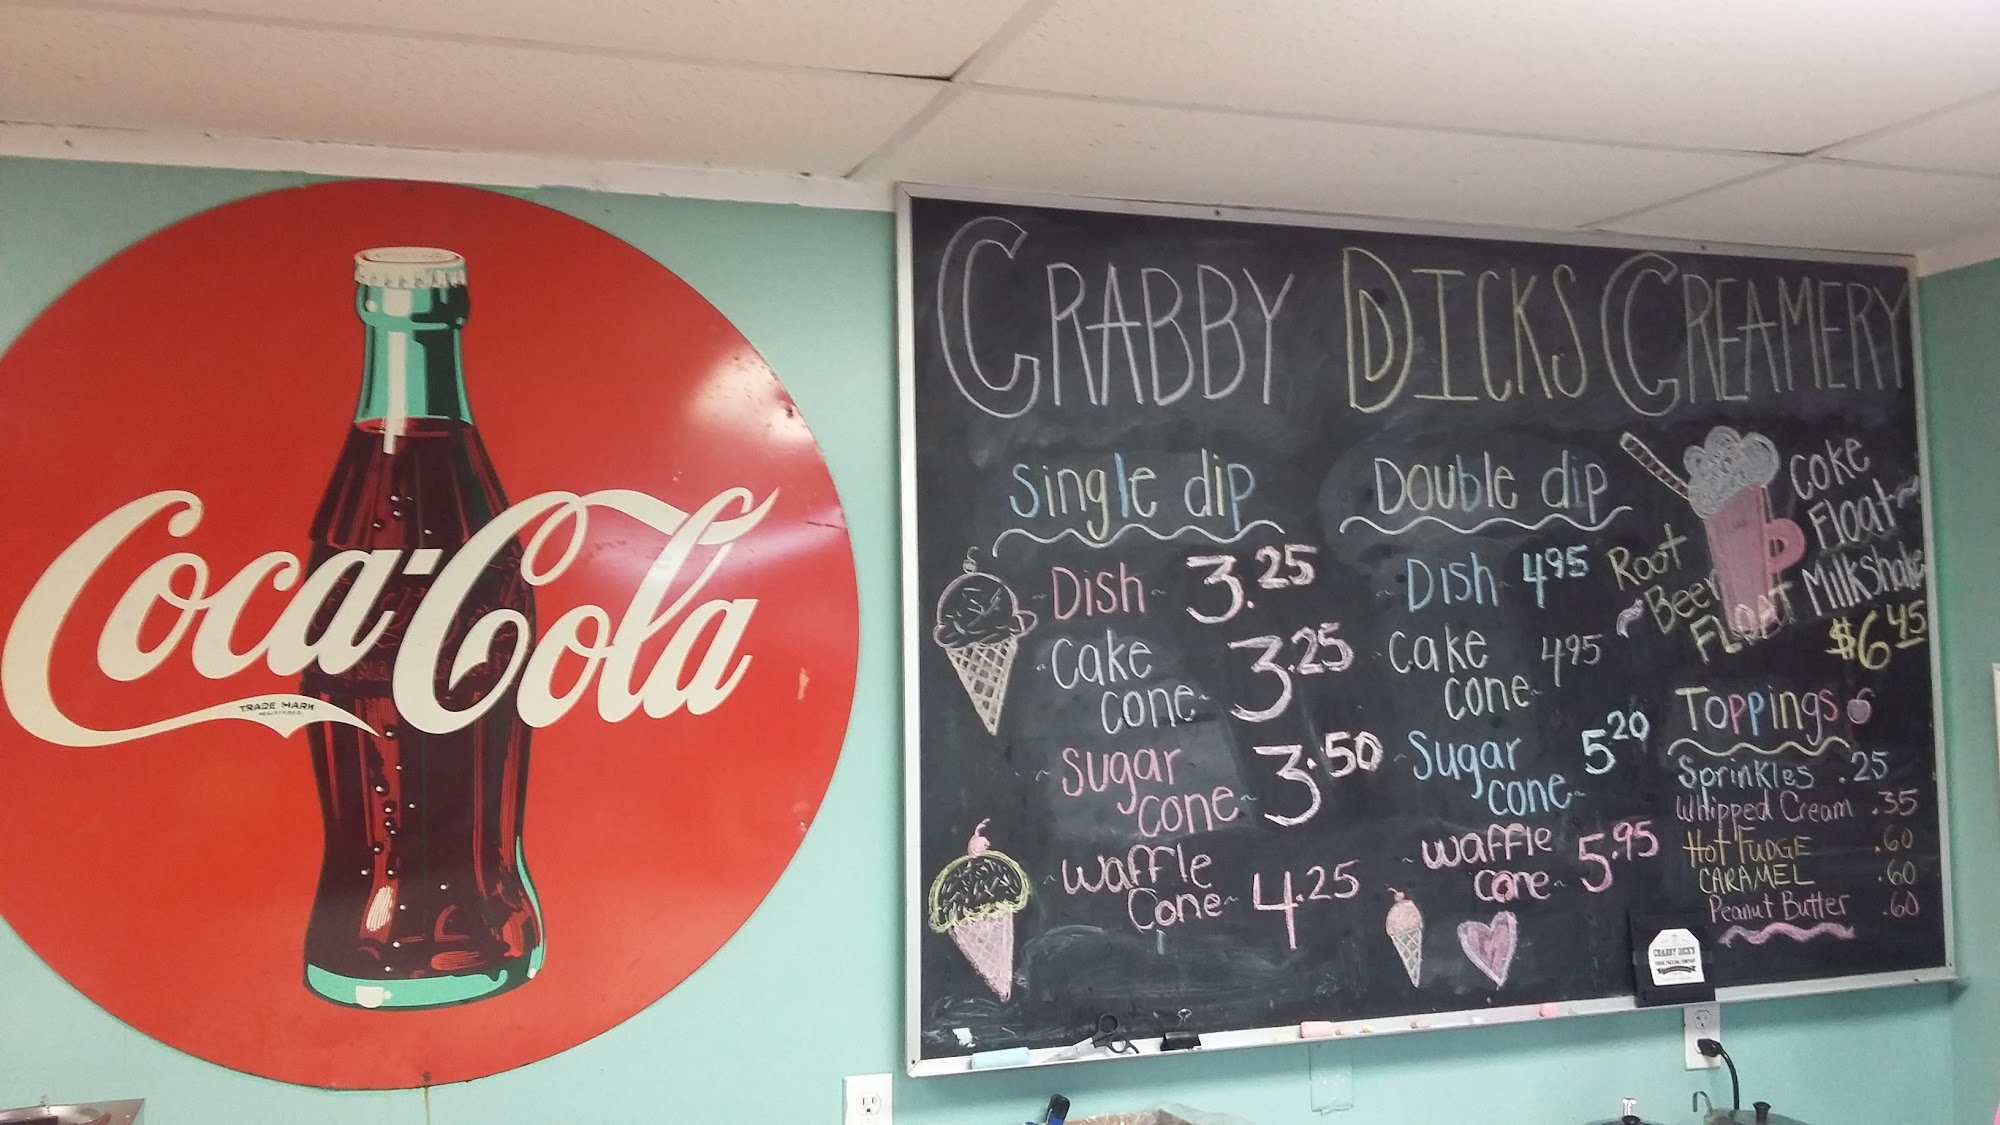 Coca-Cola
TRADE MARK
REGISTERED
CRABBY DICKS CREAMERY
Single dip
Dish ~ 3.25
Cake
cone ~ 3.25
Sugar
cone ~ 3.50
Waffle
Cone ~ 4.25
Double dip
Dish ~ 4 95
Cake
cone ~ 4 95
Sugar
cone ~ 5 20
Waffle
cone ~ 5.95
Coke
Float ~
Root
Beer
FLOAT
Milkshake
$6 45
Toppings
Sprinkles .25
Whipped Cream .35
Hot FUDGE .60
CARAMEL .60
Peanut Butter .60
CRABBY DICK'S